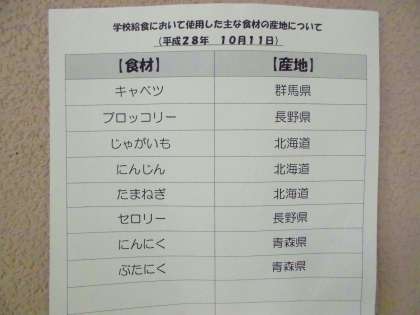 学校給食において使用した主な食材の産地について
（平成２８年　１０月１１日）
【食材】　【産地】
キャベツ　群馬県
ブロッコリー　長野県
じゃがいも　北海道
にんじん　北海道
たまねぎ　北海道
セロリー　長野県
にんにく　青森県
ぶたにく　青森県